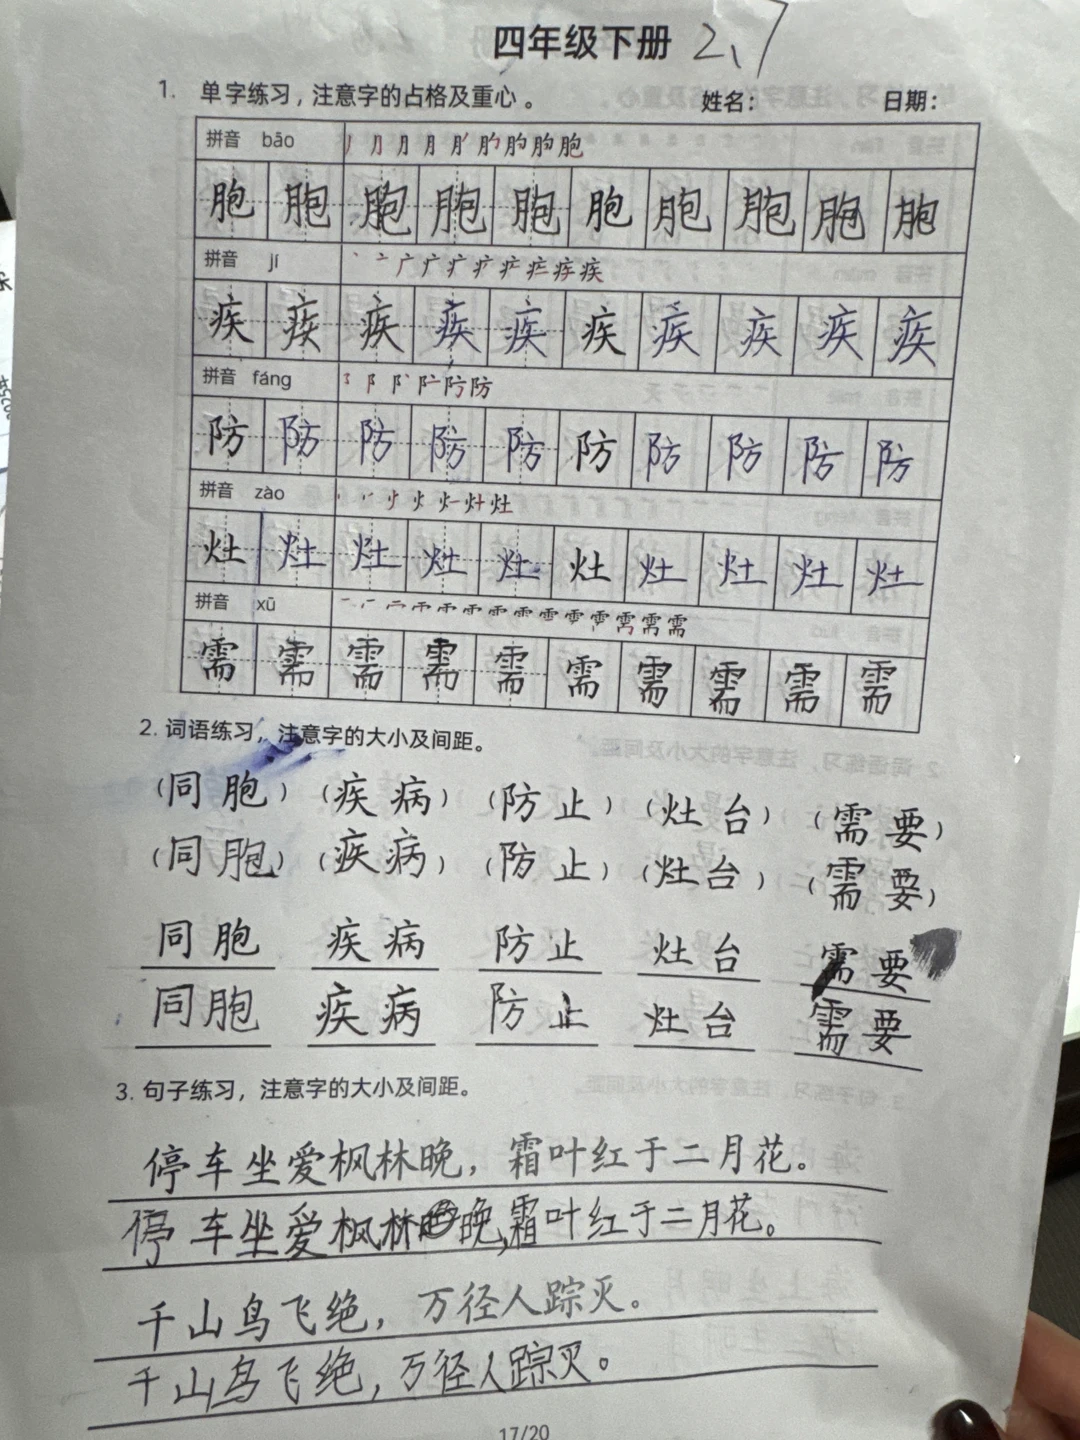 四年级下册 2、7
1. 单字练习，注意字的占格及重心。 姓名： 日期：
拼音 bāo
胞 胞 胞 胞 胞 胞 胞 胞 胞 胞
拼音 jí
疾 疾 疾 疾 疾 疾 疾 疾 疾 疾
拼音 fáng
防 防 防 防 防 防 防 防 防 防
拼音 zào
灶 灶 灶 灶 灶 灶 灶 灶 灶 灶
拼音 xū
需 需 需 需 需 需 需 需 需 需
2. 词语练习，注意字的大小及间距。
（同胞）（疾病）（防止）（灶台）（需要）
（同胞）（疾病）（防止）（灶台）（需要）
同胞 疾病 防止 灶台 需要
同胞 疾病 防止 灶台 需要
3. 句子练习，注意字的大小及间距。
停车坐爱枫林晚，霜叶红于二月花。
停车坐爱枫林晚，霜叶红于二月花。
千山鸟飞绝，万径人踪灭。
千山鸟飞绝，万径人踪灭。
17/20